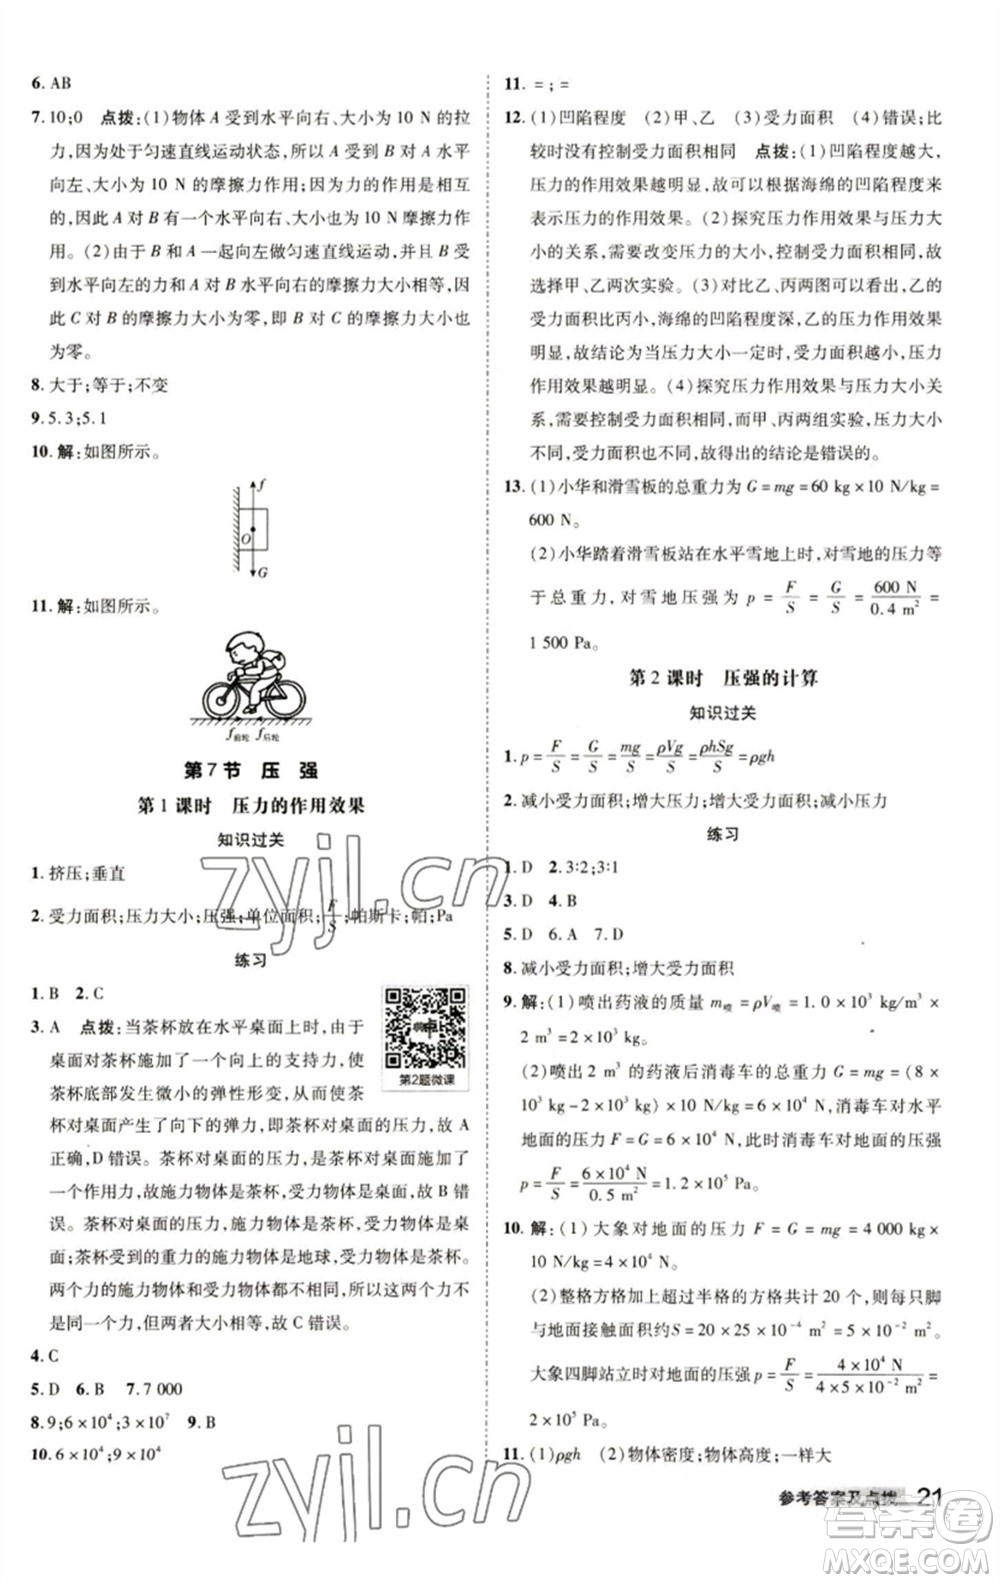 6. AB
7. 10;0　点拨:(1)物体 A 受到水平向右、大小为 10 N 的拉
力,因为处于匀速直线运动状态,所以 A 受到 B 对 A 水平
向左、大小为 10 N 的摩擦力作用;因为力的作用是相互
的,因此 A 对 B 有一个水平向右、大小也为 10 N 摩擦力作
用。(2)由于 B 和 A 一起向左做匀速直线运动,A 对 B 的
水平向左的力与水平向右的力大小相等,因
此 C 对 B 的摩擦力大小为零,即 B 对 C 的摩擦力大小也
为零。
8. 大于;等于;不变
9. 5.3;5.1
10. 解:如图所示。
f
O
G
11. 解:如图所示。
f前轮 f后轮
第 7 节　压　强
第 1 课时　压力的作用效果
知识过关
1. 挤压;垂直
2. 受力面积;压力大小;压强;单位面积;F/S;帕斯卡;帕;Pa
练习
1. B　2. C
3. A　点拨:当茶杯放在水平桌面上时,由于
桌面对茶杯施加了一个向上的支持力,使
茶杯底部发生微小的弹性形变,从而使茶
杯对桌面产生了向下的弹力,即茶杯对桌面的压力,故 A
正确,D 错误。茶杯对桌面的压力与桌面对茶杯的支持力是
一个作用力,故施力物体是茶杯,受力物体是桌面,故 B 错
误。茶杯对桌面的压力,施力物体是茶杯,受力物体是桌
面;茶杯受到的重力的施力物体是地球,受力物体是茶杯。
两个力的施力物体和受力物体不同,所以压力与重力不是
同一个力,但两者大小相等,故 C 错误。
第2题微课
4. C
5. D　6. B　7. 7 000
8. 9;6×10⁴;3×10⁷　9. B
10. 6×10⁴;9×10⁴
11. =;=
12. (1)凹陷程度　(2)甲、乙　(3)受力面积　(4)错误;比
较时没有控制受力面积相同　点拨:(1)凹陷程度越大,
压力的作用效果越明显,可以根据海绵的凹陷程度来
表示压力的作用效果。(2)探究压力作用效果与压力大
小的关系,需要改变压力的大小,控制受力面积不变,故
选择甲、乙两次实验。(3)对比乙、丙两图可以看出,乙的
受力面积比丙小,海绵的凹陷程度深,压力的作用效果
明显,故结论为当压力大小一定时,受力面积越小,压力
作用效果越明显。(4)探究压力作用效果与压力大小关
系,需要控制受力面积相同,而甲、丙两组实验,压力大小
不同,受力面积也不同,故得出的结论是错误的。
13. (1)小华和滑雪板的总重力为 G=mg=60 kg×10 N/kg=
600 N。
(2)小华踏着滑雪板站在水平雪地上时,对雪地的压力等
于总重力,对雪地压强为 p=F/S=G/S=600 N/0.4 m²=
1 500 Pa。
第 2 课时　压强的计算
知识过关
1. p=F/S=G/S=mg/S=ρVg/S=ρhSg/S=ρgh
2. 减小受力面积;增大压力;增大受力面积;减小压力
练习
1. D　2. 3∶2;3∶1
3. D　4. B
5. D　6. A　7. D
8. 减小受力面积;增大受力面积
9. 解:(1)喷出药液的质量 m喷=ρV喷=1.0×10³ kg/m³×
2 m³=2×10³ kg。
(2)喷出 2 m³ 的药液后消毒车的重力 G=mg=(8×
10³ kg-2×10³ kg)×10 N/kg=6×10⁴ N,消毒车对水平
地面的压力 F=G=6×10⁴ N,此时消毒车对地面的压强
p=F/S=6×10⁴ N/0.5 m²=1.2×10⁵ Pa。
10. 解:(1)大象对地面的压力 F=G=mg=4 000 kg×
10 N/kg=4×10⁴ N。
(2)整格方格加上超过半格的方格共计 20 个,则每只脚
与地面接触面积约S=20×25×10⁻⁴ m²=5×10⁻² m²,
大象四脚站立时对地面的压强 p=F/S=4×10⁴ N/4×5×10⁻² m²=
2×10⁵ Pa。
11. (1)ρgh　(2)物体密度;物体高度;一样大
参考答案及点拨　21
zyjl.cn
zyjl.cn
答案圈
MXQE.COM